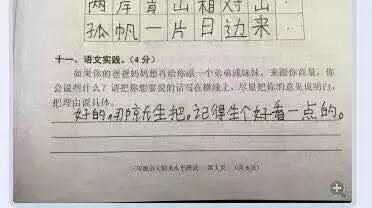 两岸青山相对出
孤帆一片日边来
十一、语文实践。(4分)
如果你的爸爸妈妈想再给你添一个弟弟或妹妹，来跟你商量，你
会说些什么？请把你想要说的话写在横线上，尽量把你的意见说明白，
把理由说具体。
好的，那就生把。记得生个好看一点的。
三年级语文期末水平测试 第5页 (共6页)